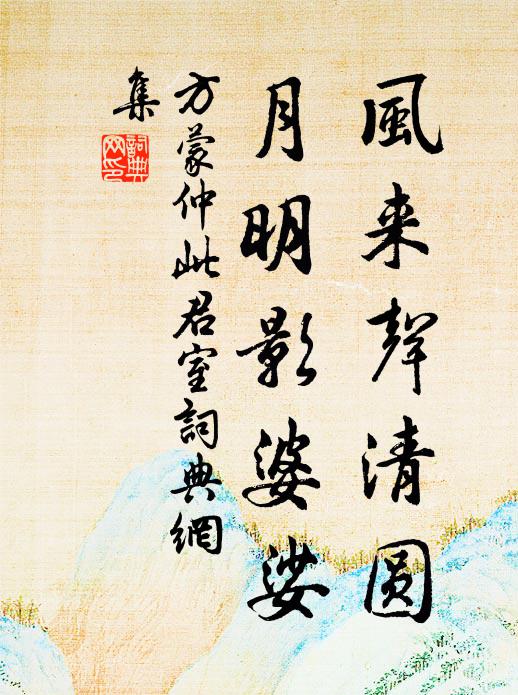 風来聲清圆
月明影婆娑
方蒙仲此君室詞典網
集
詞典
网印